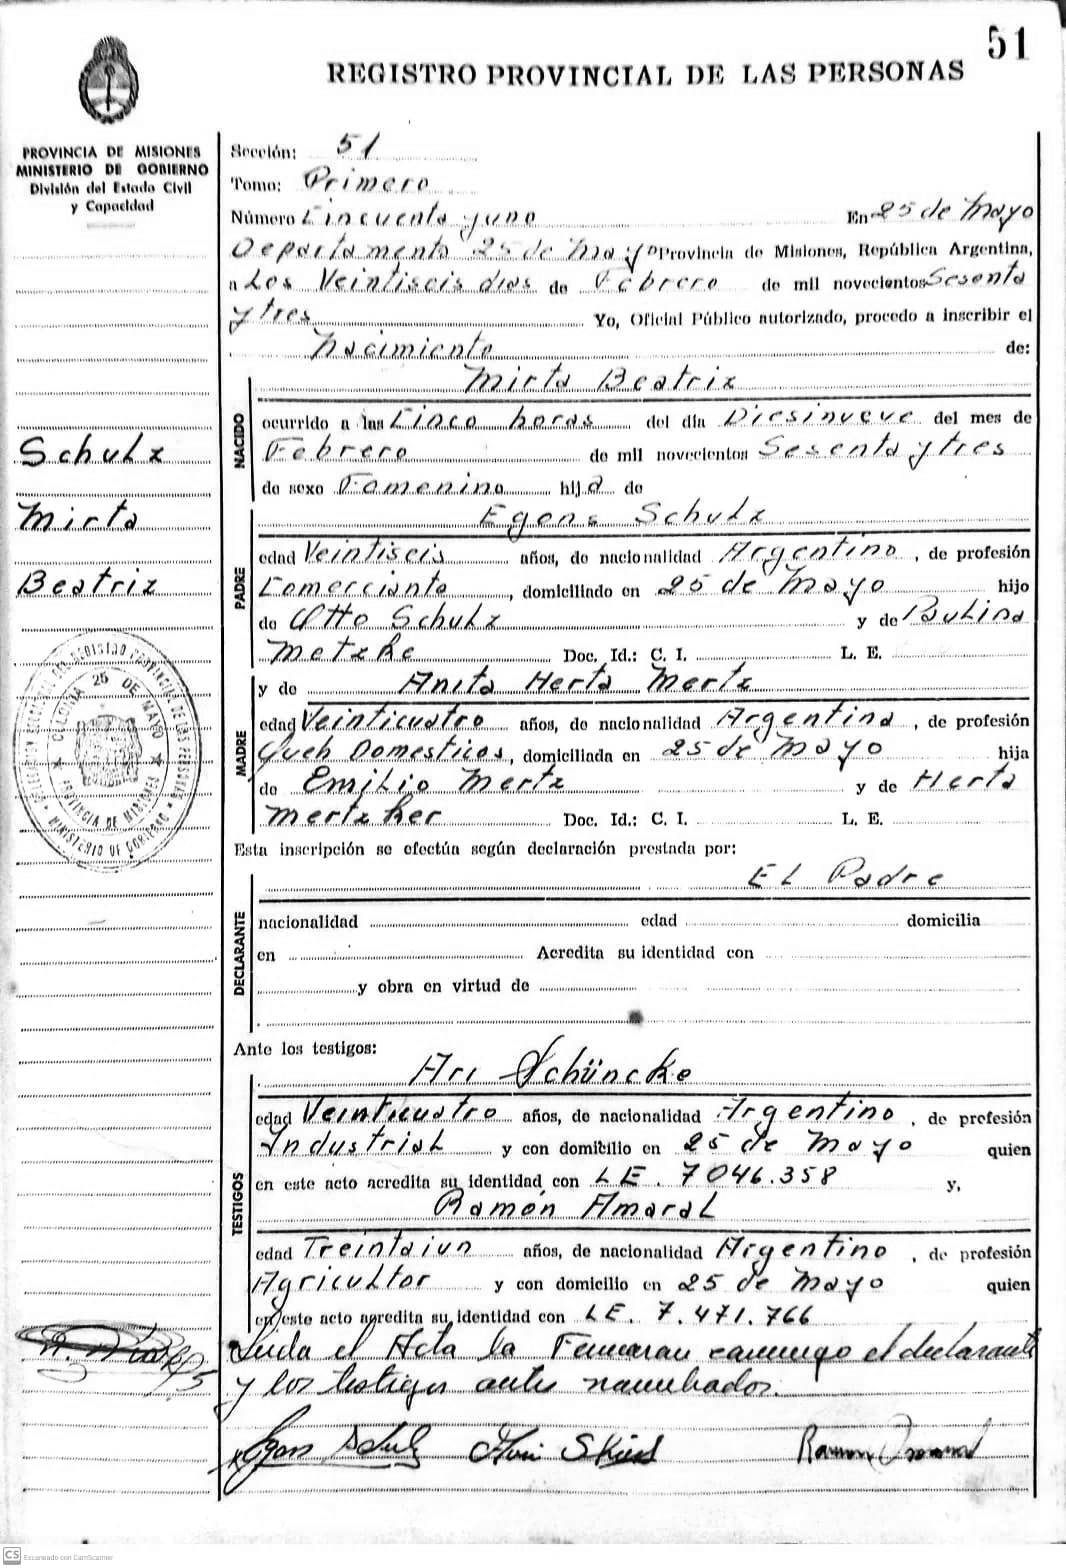 51
REGISTRO PROVINCIAL DE LAS PERSONAS
PROVINCIA DE MISIONES
MINISTERIO DE GOBIERNO
División del Estado Civil
y Capacidad
Sección: 51
Tomo: Primero
Número Cincuenta y uno En 25 de Mayo
Departamento 25 de Mayo Provincia de Misiones, República Argentina,
a Los Veintiseis dias de Febrero de mil novecientos Sesenta
y tres Yo, Oficial Público autorizado, procedo a inscribir el
Nacimiento de:
Mirta Beatriz
NACIDO
ocurrido a las Cinco horas del día Diesinueve del mes de
Febrero de mil novecientos Sesenta y tres
de sexo Femenino hija de
Schulz
Mirta
Beatriz
Egons Schulz
PADRE
edad Veintiseis años, de nacionalidad Argentino, de profesión
Comerciante, domiciliado en 25 de Mayo hijo
de Otto Schulz y de Paulina
Metzke Doc. Id.: C. I. L. E.
y de Anita Herta Mertz
MADRE
edad Veinticuatro años, de nacionalidad Argentina, de profesión
Queh Domesticos, domiciliada en 25 de Mayo hija
de Emilio Mertz y de Herta
Mertzker Doc. Id.: C. I. L. E.
COLONIA 25 DE MAYO
PROVINCIA DE MISIONES
MINISTERIO DE GOBIERNO
Esta inscripción se efectúa según declaración prestada por:
El Padre
DECLARANTE
nacionalidad edad domicilia
en Acredita su identidad con
y obra en virtud de
Ante los testigos:
Ari Schüncke
TESTIGOS
edad Veinticuatro años, de nacionalidad Argentino, de profesión
Industrial y con domicilio en 25 de Mayo quien
en este acto acredita su identidad con L E. 7046.358 y,
Ramón Amaral
edad Treintaiun años, de nacionalidad Argentino, de profesión
Agricultor y con domicilio en 25 de Mayo quien
en este acto acredita su identidad con L E. 7.471.766
Leida el Acta la Firmaran conmigo el declarante
y los testigos antes nombrados.
Egons Schulz
Ramon
CS Escaneado con CamScanner